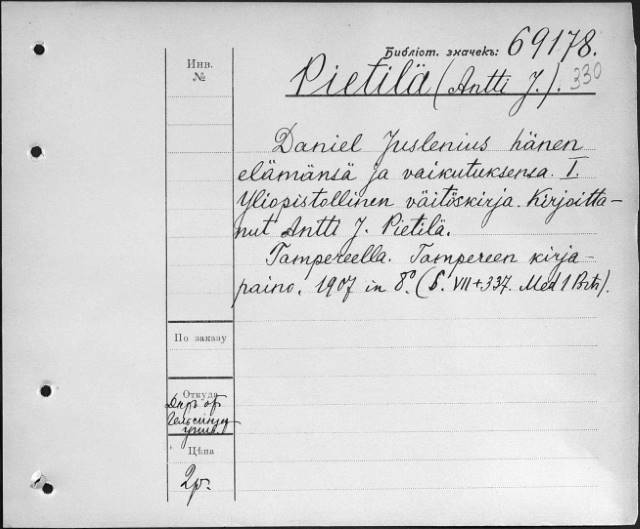 Библіот. значекъ: 69178.
Инв. №
Pietilä (Antti J.). 330
Daniel Juslenius hänen
elämänsä ja vaikutuksensa. I.
Yliopistollinen väitöskirja. Kirjoitta-
nut Antti J. Pietilä.
Tampereella. Tampereen kirja-
paino. 1907 in 8º. (S. VII+337. Med 1 Bth).
По заказу
Откуда
Гельсингф
унив.
Цѣна
2р.